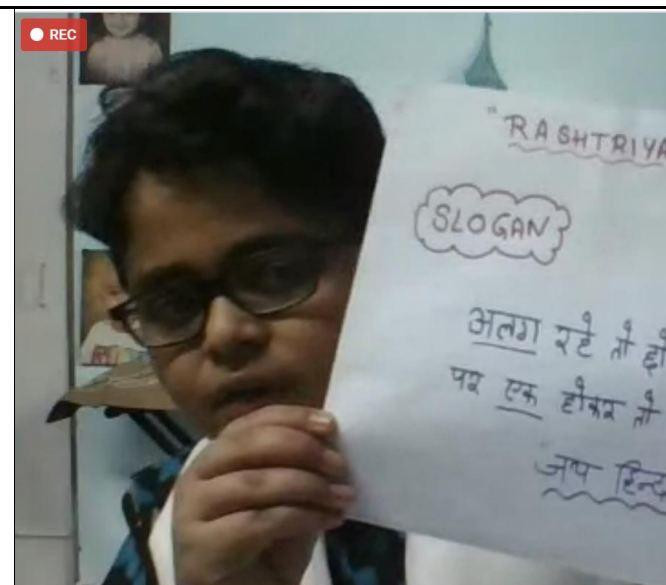 REC
"RASHTRIYA
SLOGAN
अलग रहे तो
पर एक होकर तो
जय हिन्द